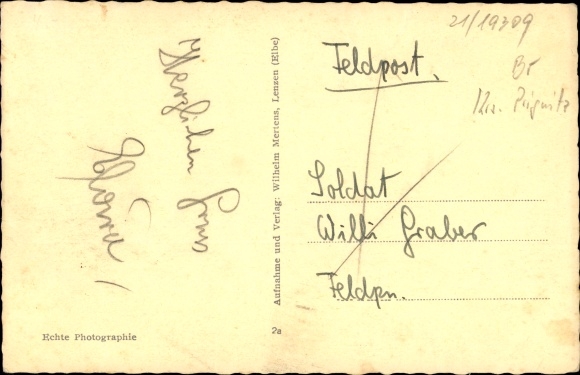 Herzlichen Gruss
Echte Photographie
Aufnahme und Verlag: Wilhelm Mertens, Lenzen (Elbe)
2a
21/19309
Br
Krs. Prignitz
Feldpost.
Soldat
Willi Graber
Feldpn.